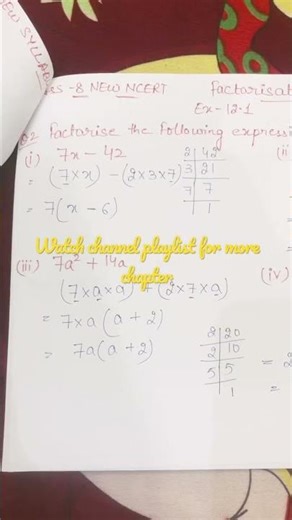 NEW SYLLAB
-8 NEW NCERT
Factorisat
Ex-12.1
Q2 Factorise the following express
(i) 7x - 42
(ii)
2 | 42
3 | 21
7 | 7
1
= (7×x) - (2×3×7)
= 7(x - 6)
Watch channel playlist for more
chapter
(iii) 7a² + 14a
(iv)
(7×a×a) + (2×7×a)
= 7×a(a+2)
= 7a(a+2)
2 | 20
2 | 10
5 | 5
1
= 2
=